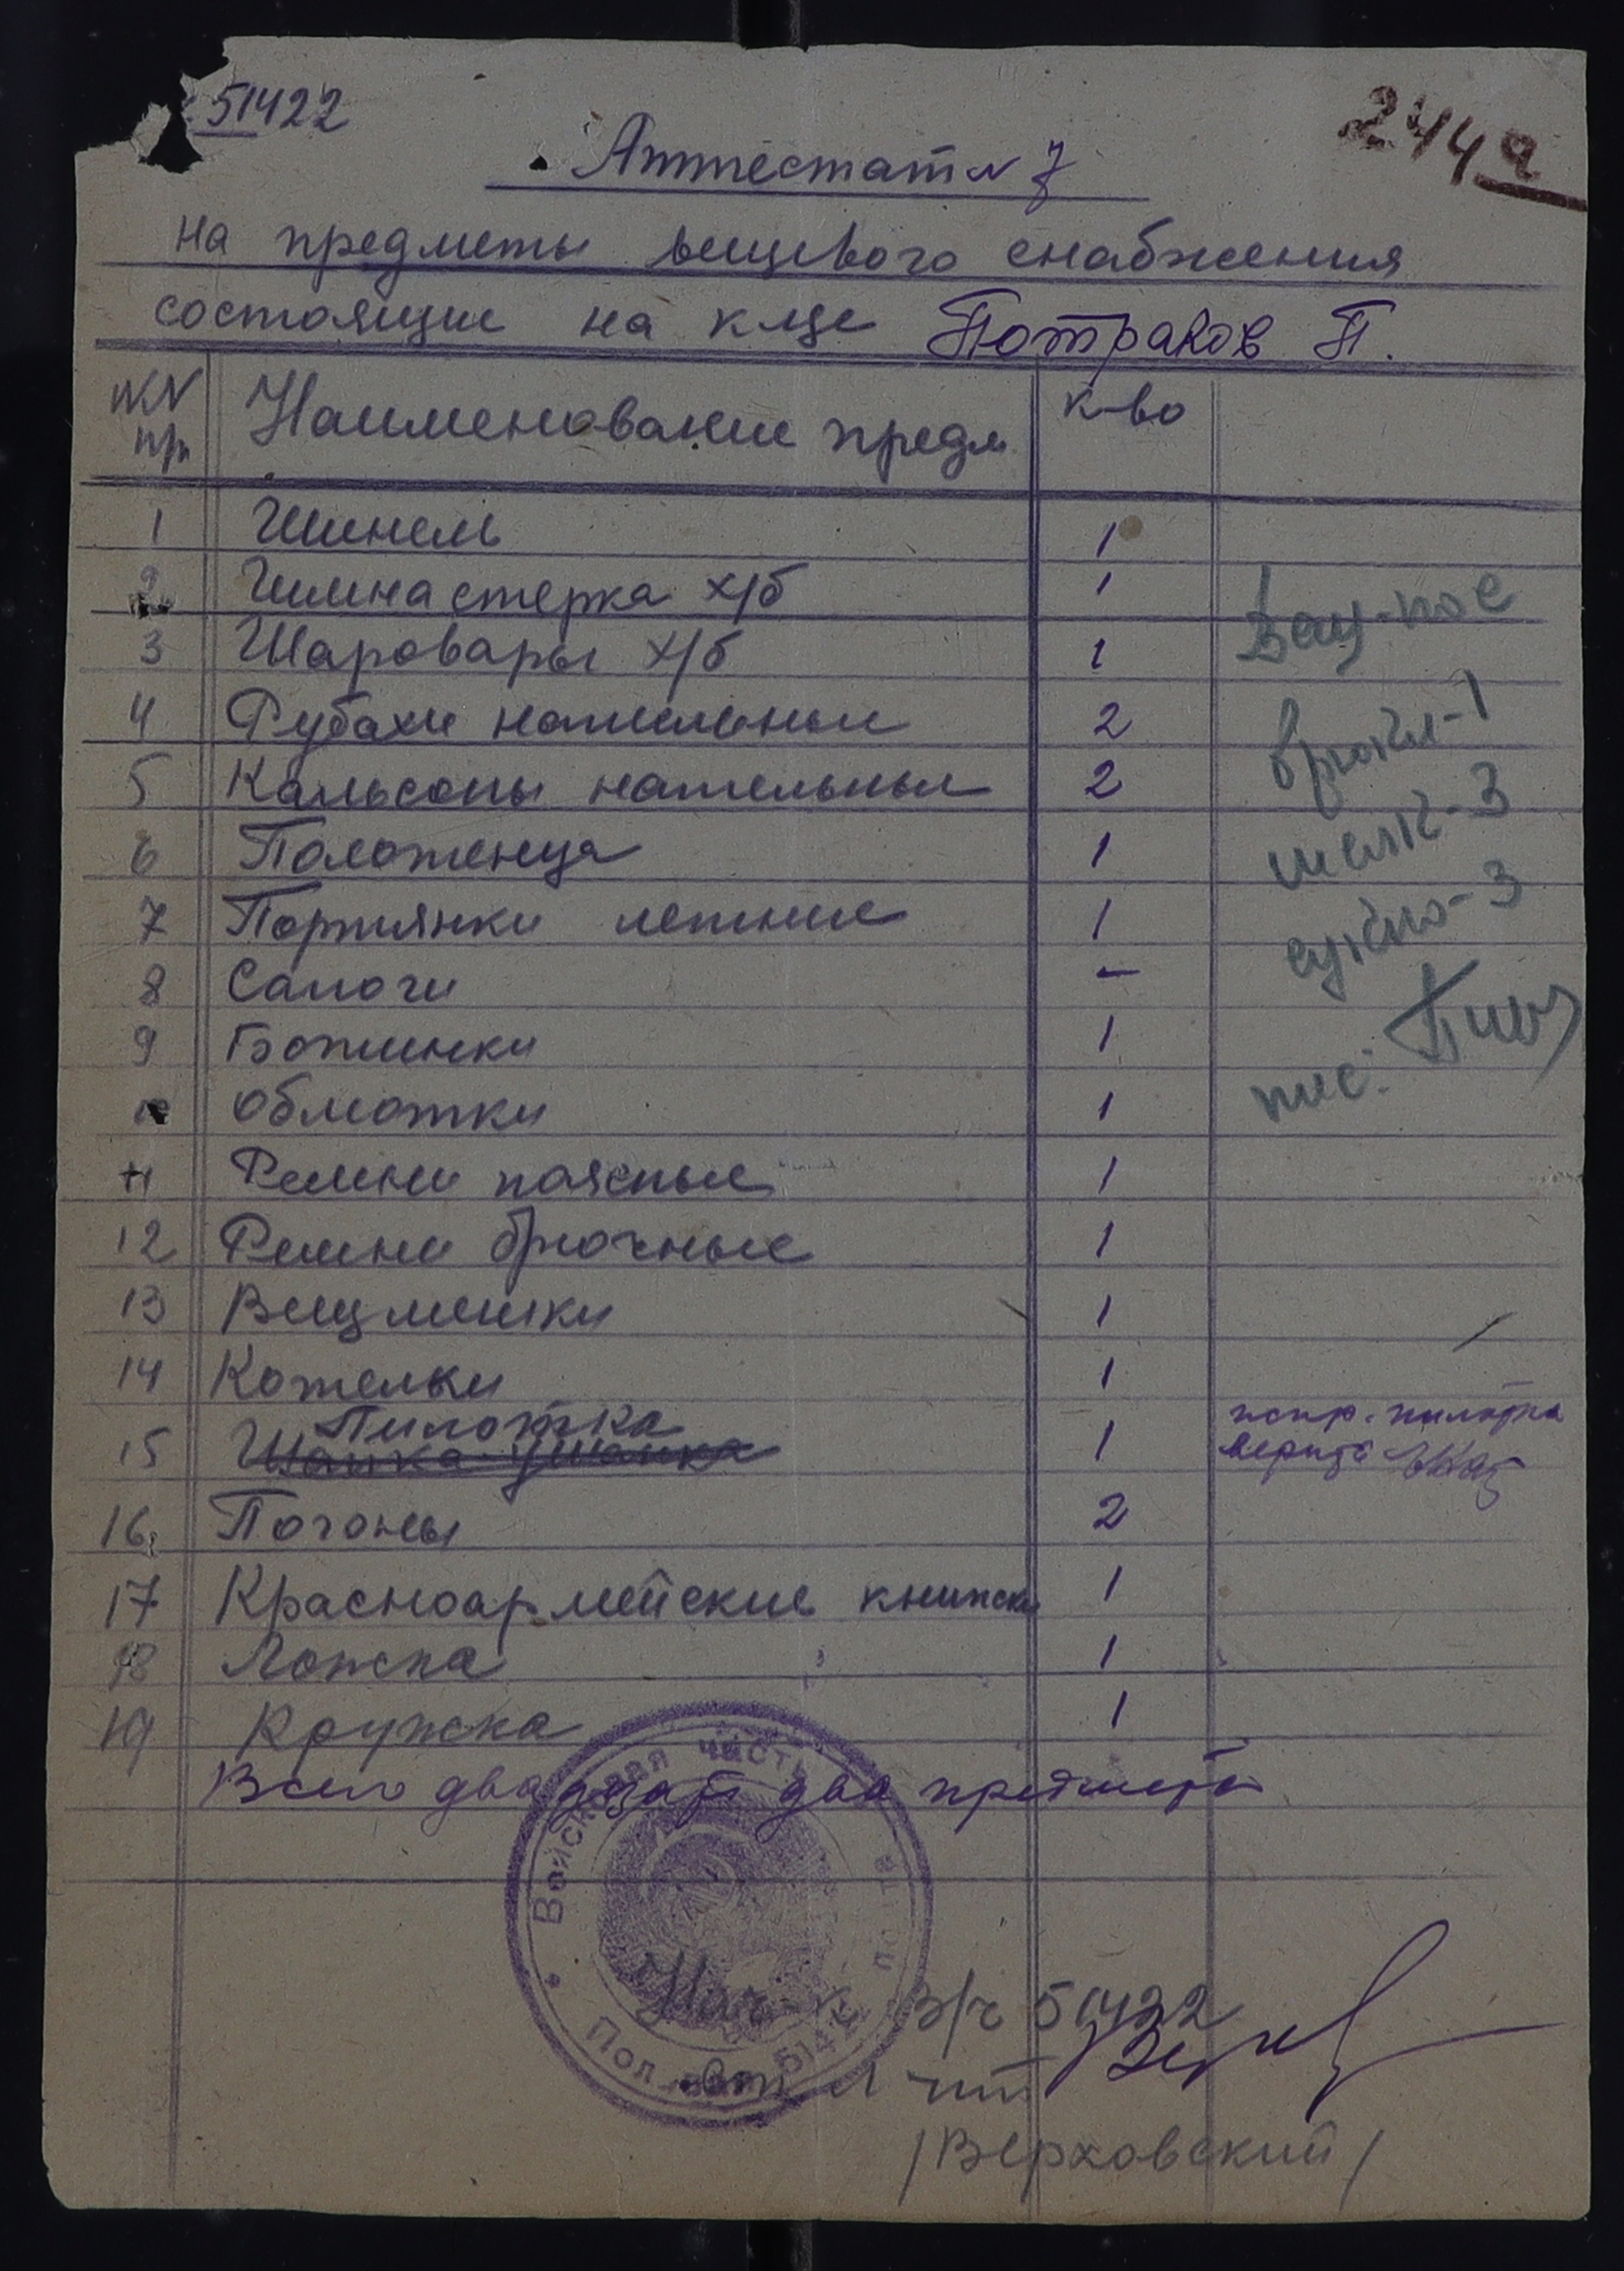 51422
244а
Аттестат № 7
на предметы вещевого снабжения
состоящие на к-це Потраков П.
№№ пр Наименование предм к-во
1 Шинель 1
2 Гимнастерка х/б 1
3 Шаровары х/б 1
Вещ-пос
4 Рубахи нательные 2
брюки-1
5 Кальсоны нательные 2
6 Полотенца 1
7 Портянки летние 1
8 Сапоги –
9 Ботинки 1
10 Обмотки 1
11 Ремни поясные 1
12 Ремни брючные 1
13 Вещмешки 1
14 Котелки 1
Пилотка
15 Шапка-ушанка 1
испр. пилотка
16. Погоны 2
17 Красноармейские книжки 1
18 Ложка 1
19 Кружка 1
Всего двадцать два предмета
Войсковая часть
Полевая почта 51422
Нач-к В/ч 51422
Ст л-нт
/Верховский/